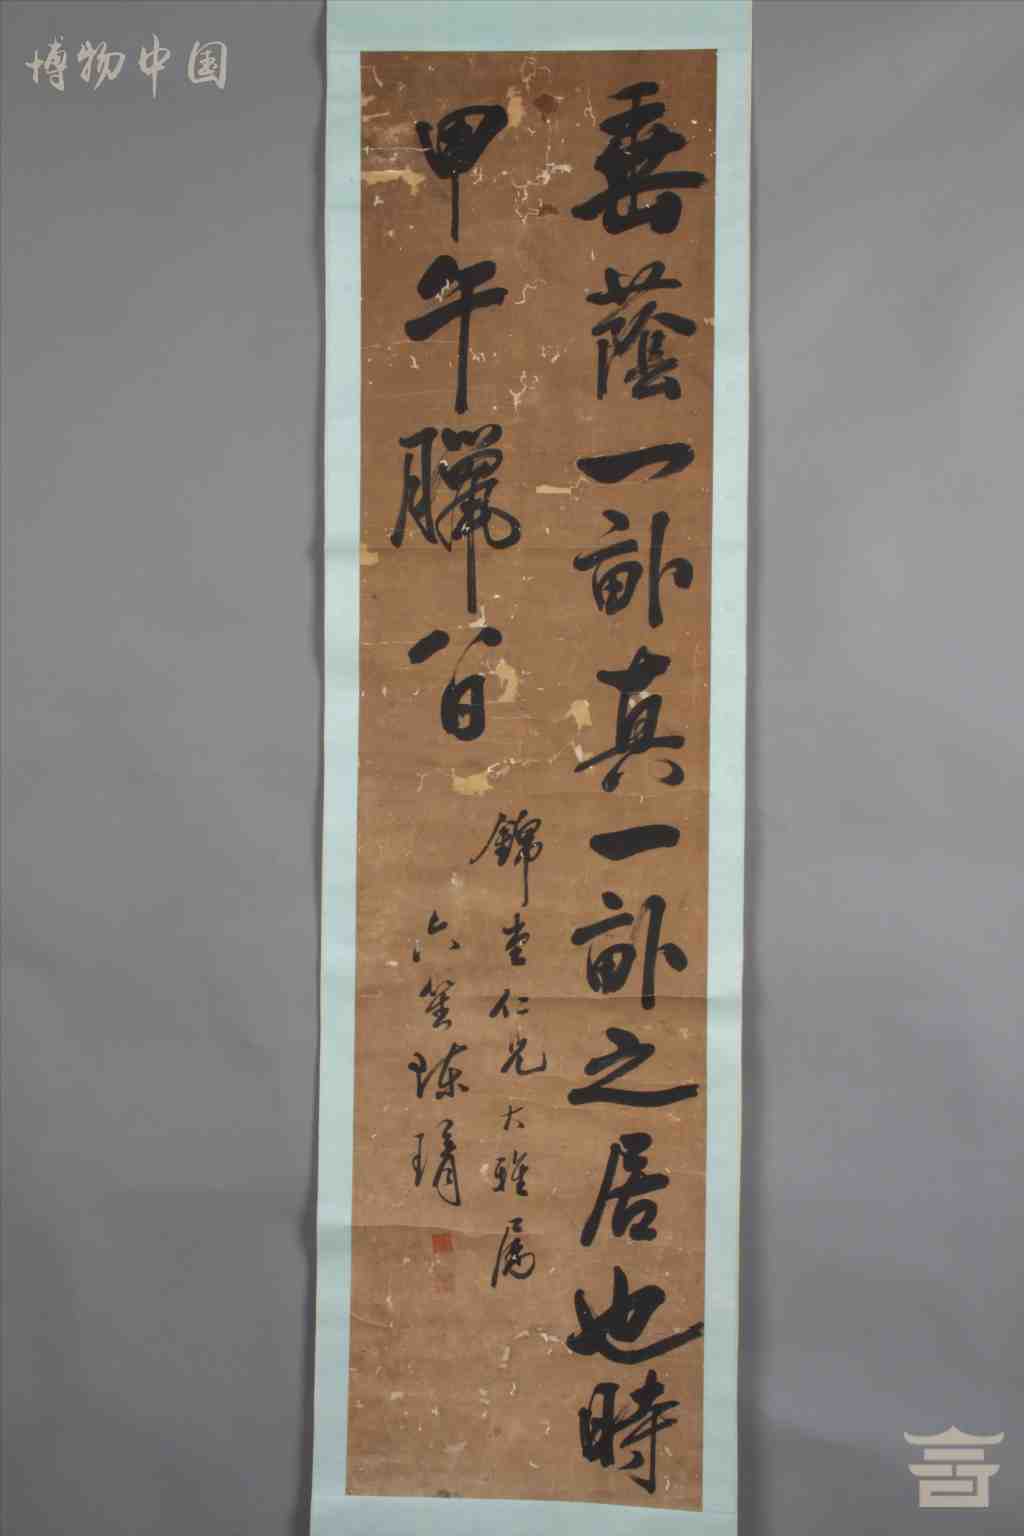 博物中国
垂蔭一畝真一畝之居也時
甲午臘八日
錦堂仁兄大雅屬
六笙陳璚